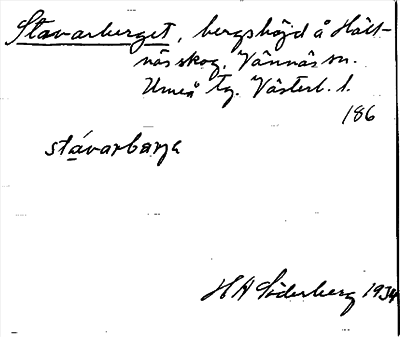 Stavarberget, bergshöjd å Hält-
näs skog, Vännäs sn.
Umeå tg. Västerb. l.
186
stávarbarja
H A Söderberg 1934